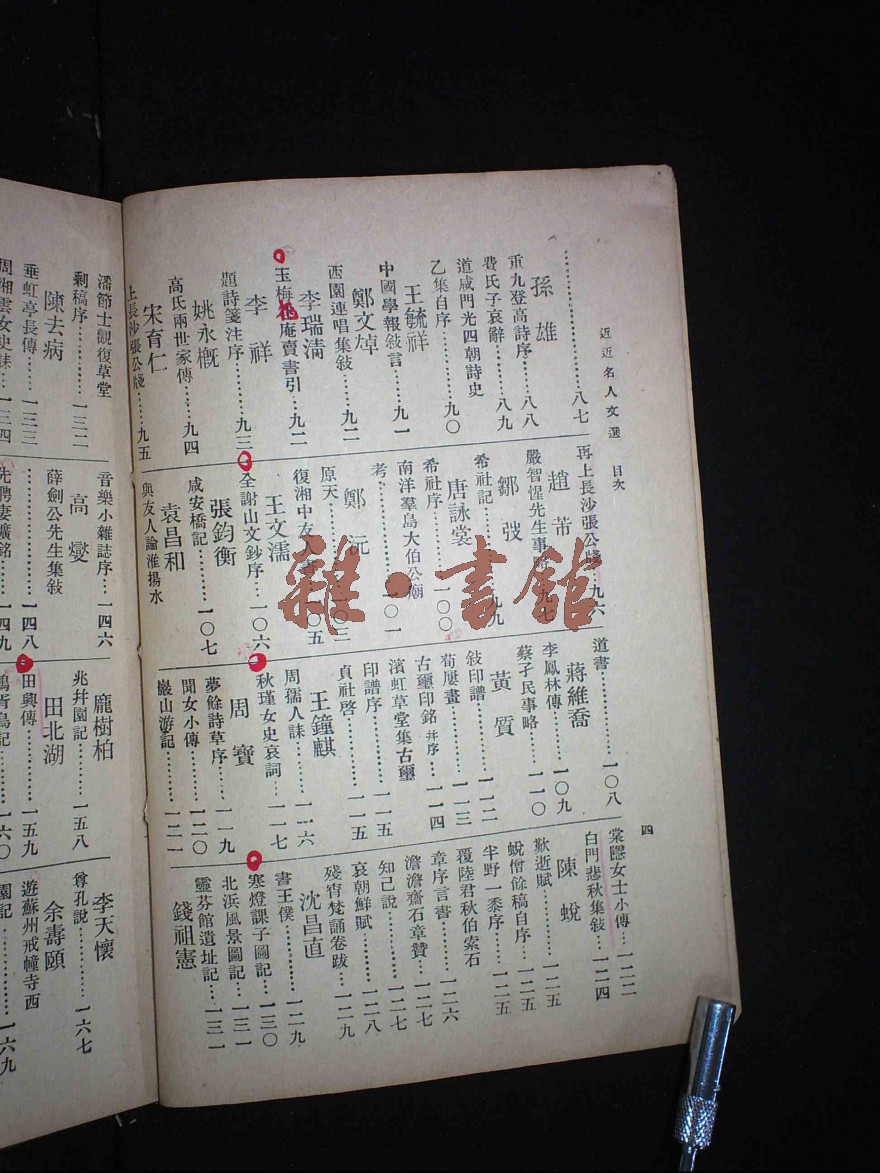 近近名人文選 目次
四
……………………八七
孫雄
重九登高詩序…八八
費氏子哀辭……八九
道咸同光四朝詩史
乙集自序………九〇
王毓祥
中國學報敍言…九一
鄭文焯
西園連唱集敍…九二
李瑞清
玉梅花庵賣書引…九二
李祥
題詩箋注序……九三
姚永概
高氏兩世家傳…九四
宋育仁
上長沙張公牋……九五
再上長沙張公牋…九六
趙芾
嚴智惺先生事略…九七
鄒弢
希社記…………九九
唐詠裳
希社序…………一〇〇
南洋羣島大伯公廟
考………………一〇一
鄭沅
原天……………一〇三
復湘中友人書…一〇五
王文濡
全謝山文鈔序…一〇六
張鈞衡
咸安橋記………一〇七
袁昌和
與友人論淮揚水
道書……………一〇八
蔣維喬
李鳳林傳………一〇九
蔡孑民事略……一一〇
黃質
敍印譜…………一一二
荀屢畫…………一一三
古璽印銘并序…一一四
濱虹草堂集古璽
印譜序…………一一五
貞社啓…………一一五
王鐘麒
周孺人誄………一一六
秋瑾女史哀詞…一一七
周實
夢餘詩草序……一一九
聞女小傳………一二〇
巖山游記………一二一
棠隱女士小傳…一二二
白門悲秋集敍…一二四
陳蛻
歎逝賦…………一二五
蛻僧餘稿自序…一二五
半野一黍序……一二五
覆陸君秋伯索石
章序言書………一二六
澹澹齋石章贊…一二七
知己說…………一二七
哀朝鮮賦………一二八
殘宵梵誦卷跋…一二九
沈昌直
書王僕…………一二九
寒燈課子圖記…一三〇
北浜風景圖記…一三一
靈芬館遺址記…一三一
錢祖憲
潘節士觀復草堂
剩稿序…………一三二
陳去病
垂虹亭長傳……一三三
周湘雲女史誄…一三四
音樂小雜誌序…一四六
高燮
薛劍公先生集敍
………………一四八
先聘妻壙銘……一四九
龐樹柏
兆丼園記………一五八
田北湖
田興傳…………一五九
……一六〇
李天懷
尊孔說…………一六七
余壽頤
遊蘇州戒幢寺西
園記……………一六九
雜·書館